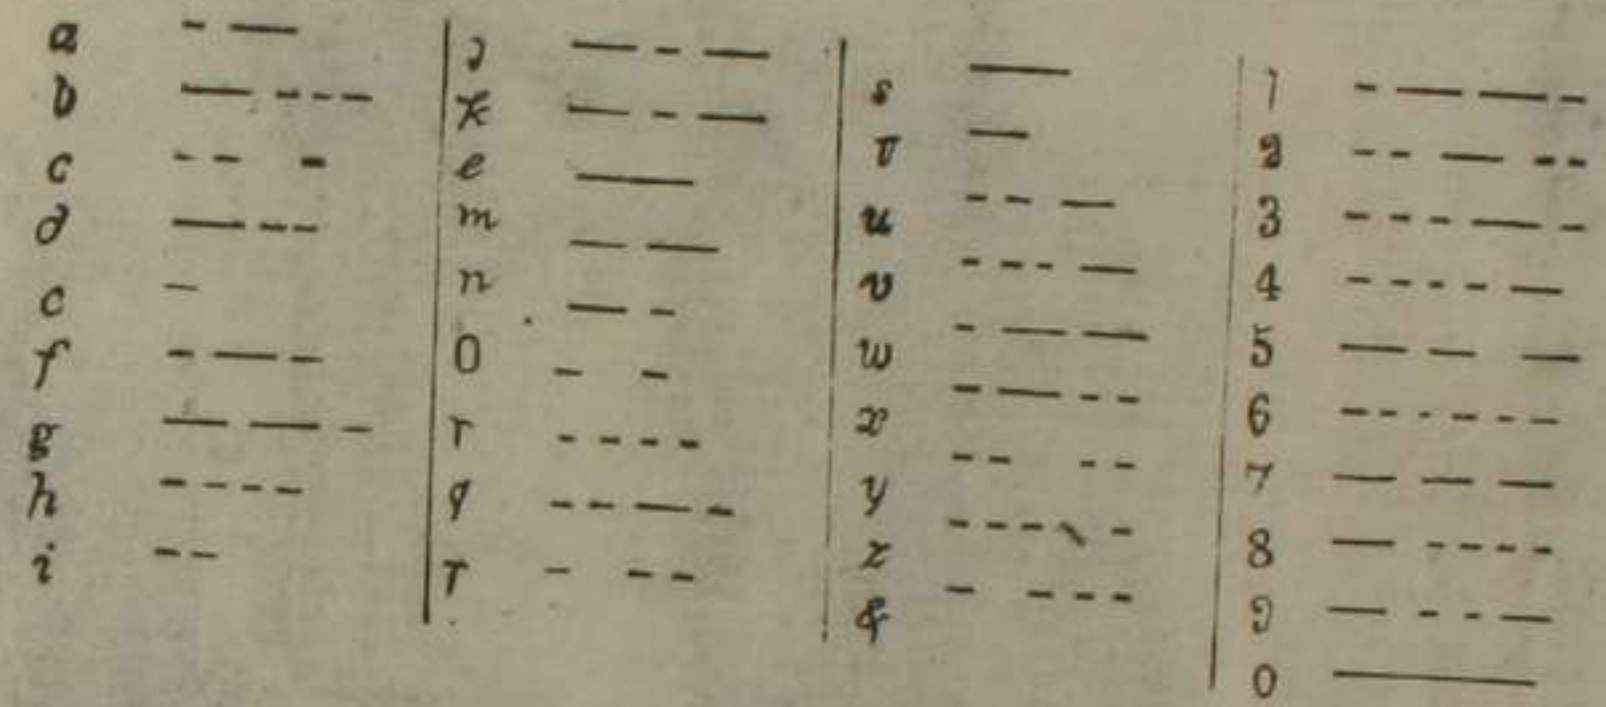 a - —
b — - - -
c - -  -
d — - -
e -
f - — -
g — — -
h - - - -
i - -
j — - —
k — - —
l ——
m — —
n — -
O -  -
p - - - -
q - - — -
r -  - -
s ——
T —
u - - —
v - - - —
w - — —
x - — - -
y - -  - -
z - - - -  -
& -  - - -
1 - — — -
2 - - — - -
3 - - - — -
4 - - - - —
5 — —  —
6 - - - - - -
7 — — —
8 — - - - -
9 — - - —
0 ———